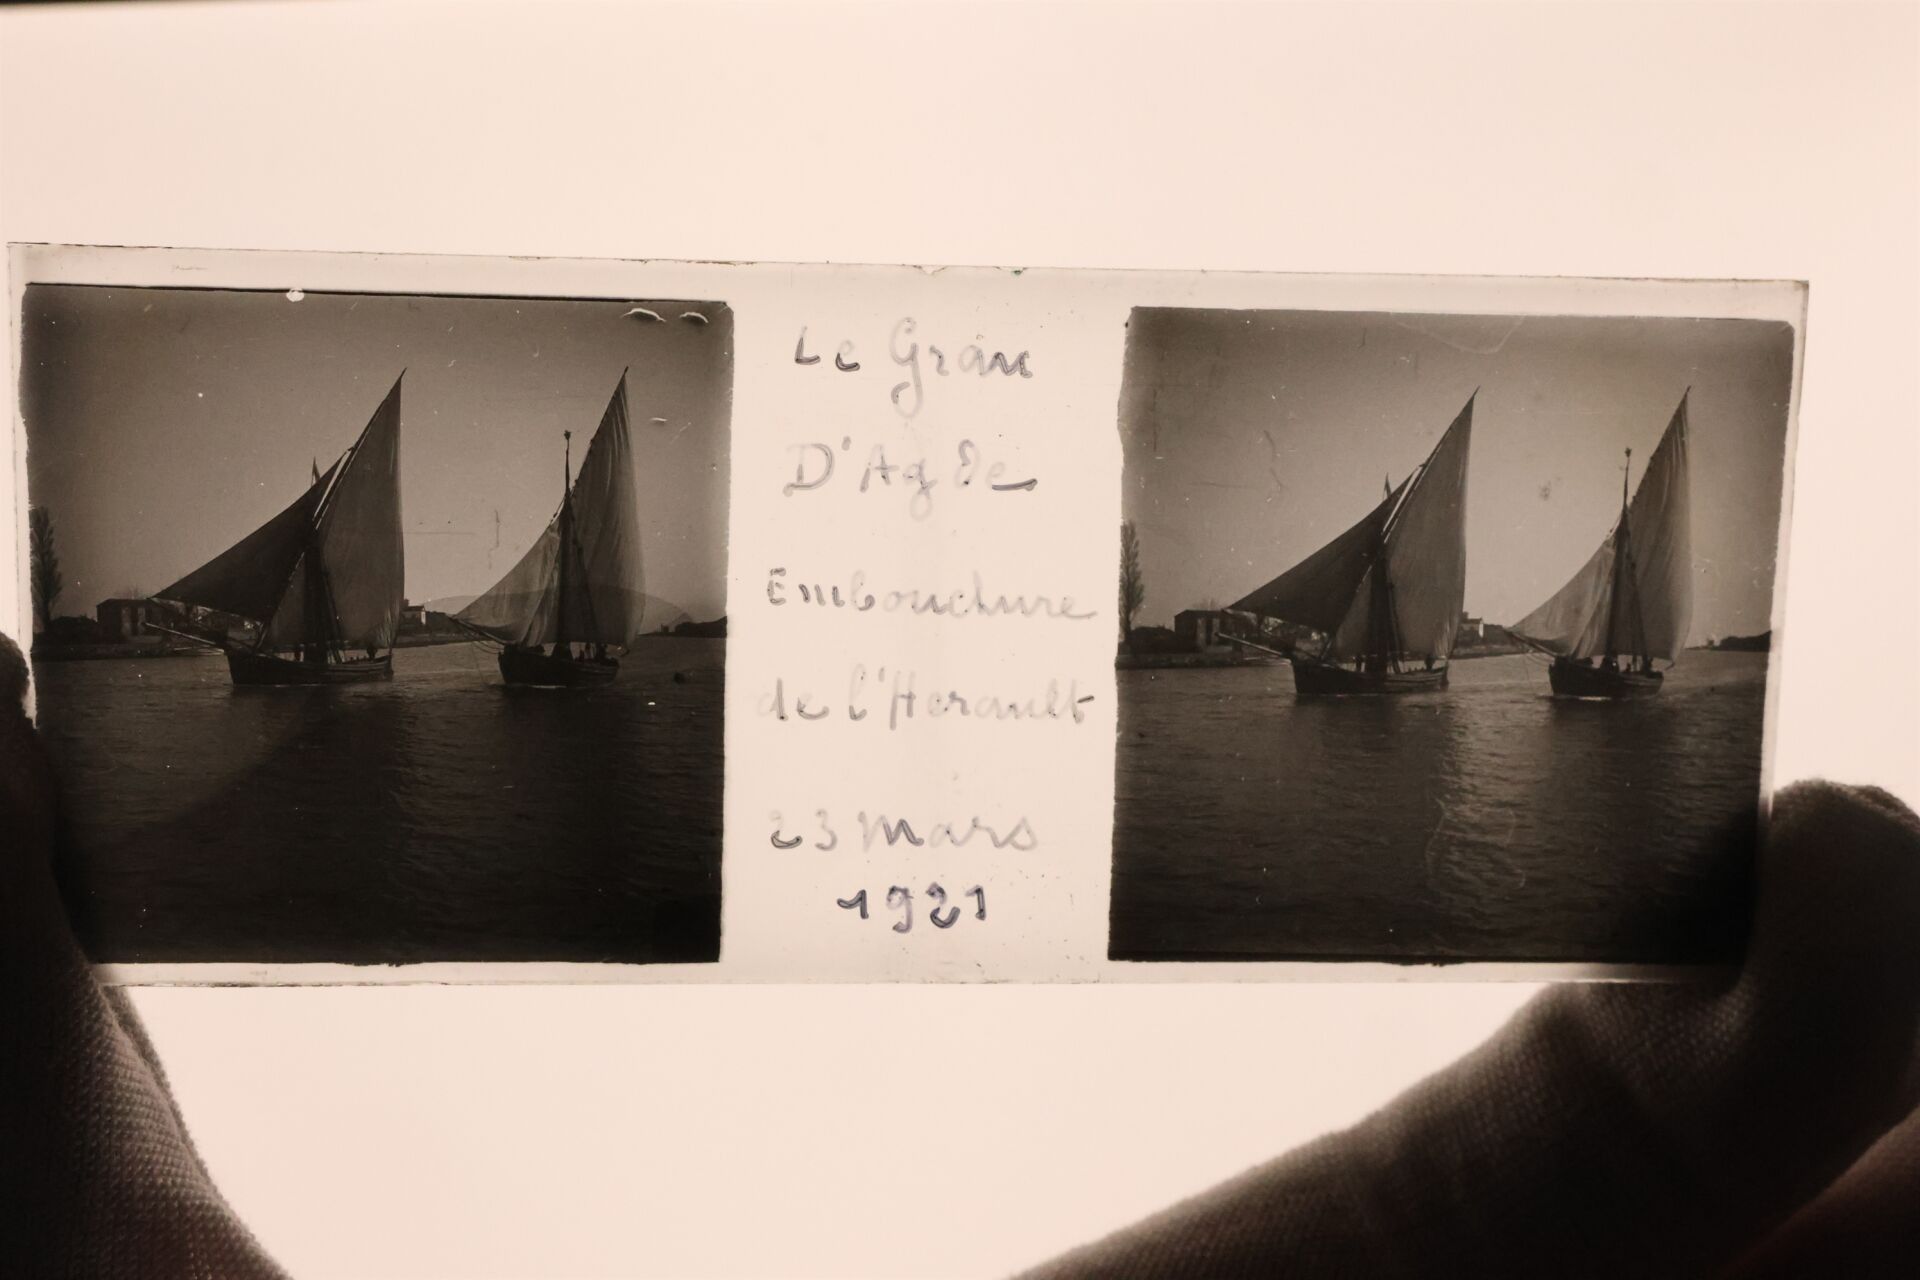 Le Grau
D'Agde
Embouchure
de l'Herault
23 Mars
1921